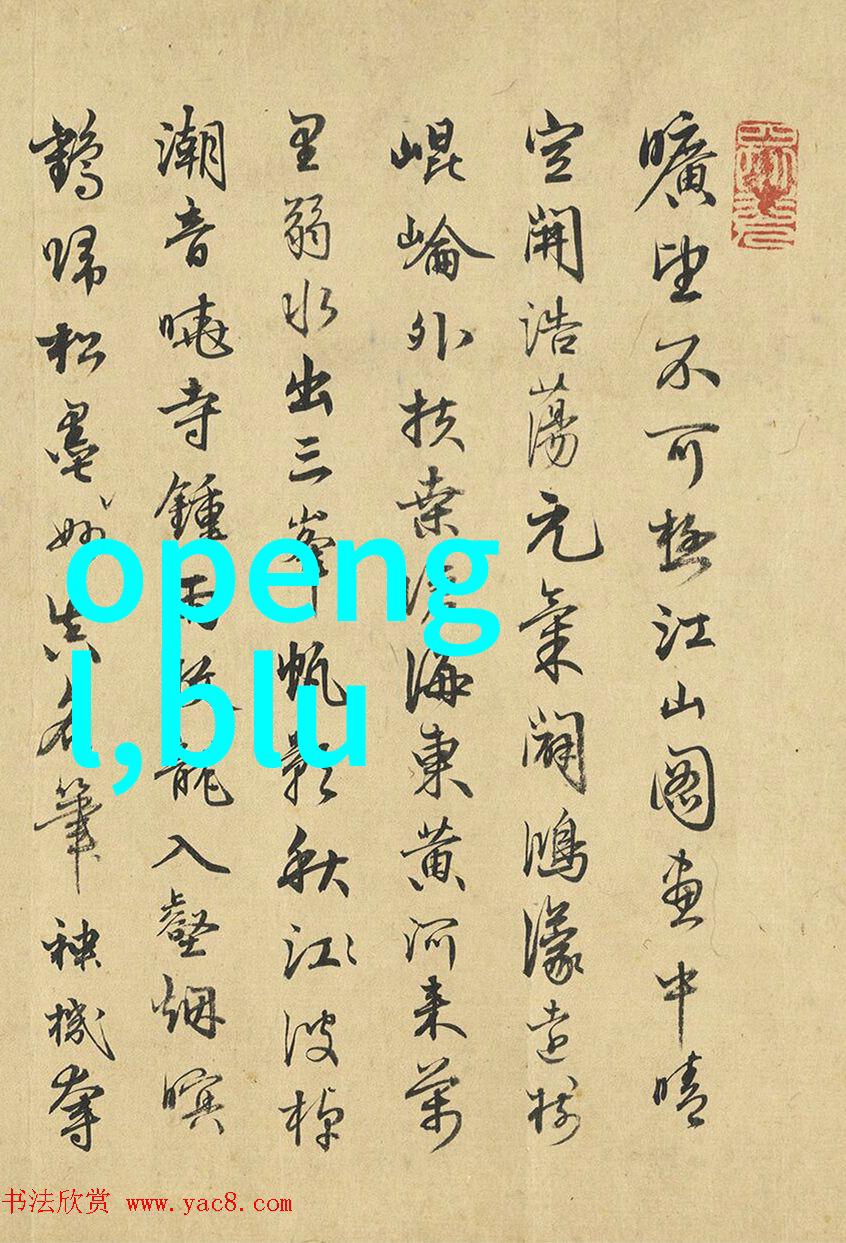 曠望不可極江山圖畫中晴
空開浩蕩元氣闢鴻濛遠樹
崐崘外扶桒滄海東黄河来萬
里弱水出三峯帆影秋江波棹
潮音曉寺鍾雨收龍入壑烟暝
鶴歸松墨妙真名筆神機奪
openg
l,blu
书法欣赏 www.yac8.com